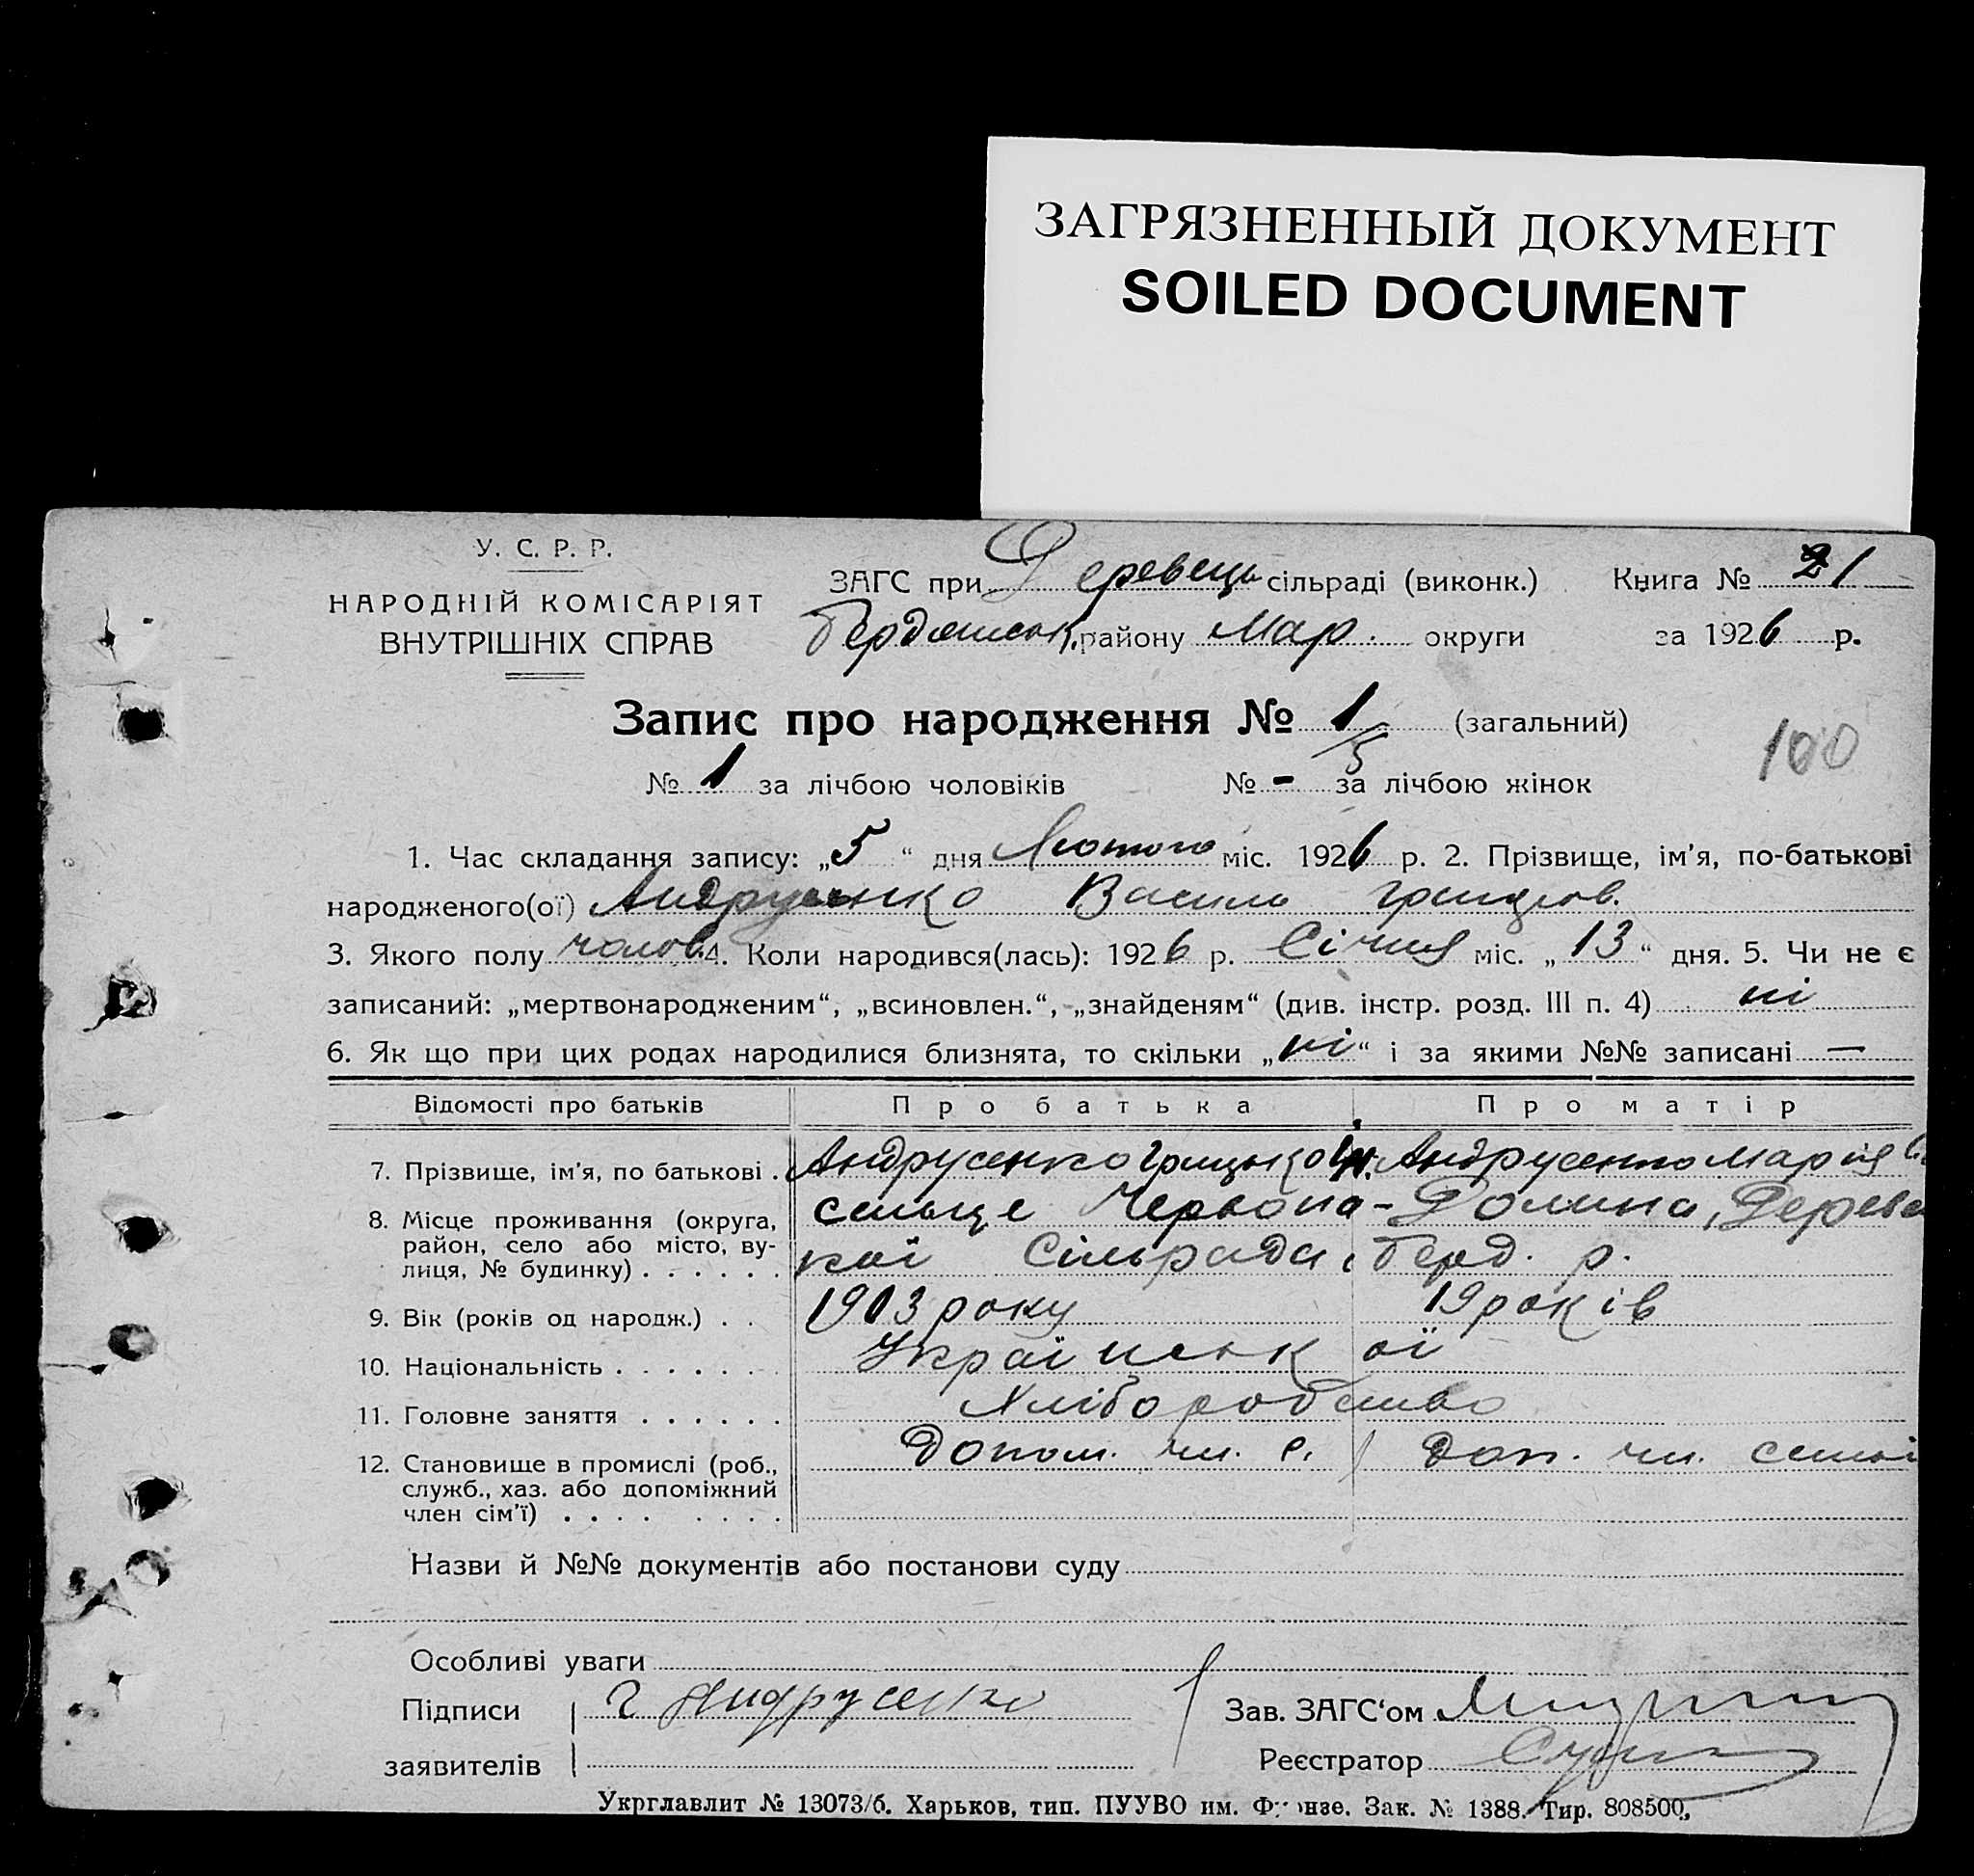 ЗАГРЯЗНЕННЫЙ ДОКУМЕНТ
SOILED DOCUMENT
У. С. Р. Р.
НАРОДНІЙ КОМІСАРІЯТ
ВНУТРІШНІХ СПРАВ
ЗАГС при Деревець сільраді (виконк.) Книга № 1
Бердянськ. району Мар. округи за 1926 р.
Запис про народження № 1 (загальний)
5
100
№ 1 за лічбою чоловіків № - за лічбою жінок
1. Час складання запису: „5“ дня Лютого міс. 1926 р. 2. Прізвище, ім’я, по-батькові
народженого(ої) Андрусенко Василь Грицьков.
3. Якого полу чолов. 4. Коли народився(лась): 1926 р. Січня міс. „13“ дня. 5. Чи не є
записаний: „мертвонародженим“, „всиновлен.“, „знайденям“ (див. інстр. розд. III п. 4) ні
6. Як що при цих родах народилися близнята, то скільки „ні“ і за якими №№ записані —
Відомості про батьків Про батька Про матір
7. Прізвище, ім’я, по батькові . Андрусенко Грицько Андрусенко Марія
8. Місце проживання (округа, сельце Червона-Долина, Дерев
район, село або місто, ву- кої Сільради, Берд. р.
лиця, № будинку) . . . . . .
9. Вік (років од народж.) . . 1903 року 19 років
10. Національність . . . . . . . Української
11. Головне заняття . . . . . . Хліборобство
12. Становище в промислі (роб., Допом. чл. с. / Доп. чл. семьї
служб., хаз. або допоміжний
член сім’ї) . . . . . . . .
Назви й №№ документів або постанови суду
Особливі уваги
Підписи Г Андрусенко Зав. ЗАГС‘ом
заявителів Реєстратор
Укрглавлит № 13073/б. Харьков, тип. ПУУВО им. Фрунзе. Зак. № 1388. Тир. 808500.